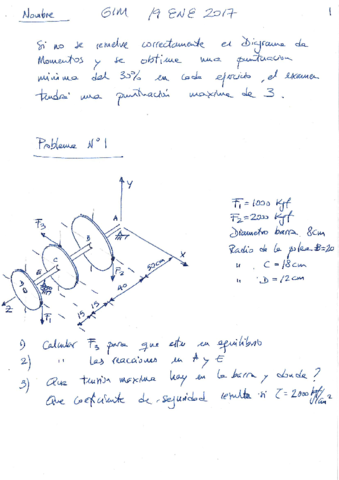 Nombre GIM 19 ENE 2017 1
Si no se resuelve correctamente el Diagrama de
Momentos y se obtiene una puntuacion
minima del 30% en cada ejercicio, el examen
tendrá una puntuación maxima de 3.
Problema Nº 1
Y
A
B
C
E
D
X
Z
F3
F2
F1
50cm
40
15
15
F1 = 1000 Kgf
F2 = 2000 Kgf
Diametro barra 8cm
Radio de la polea B=20
" C = 18cm
" D = 12cm
1) Calcular F3 para que este en equilibrio
2) " las reacciones en A y E
3) Que tensión maxima hay en la barra y donde?
Que coeficiente de seguridad resulta si τ = 2000 kgf/cm²